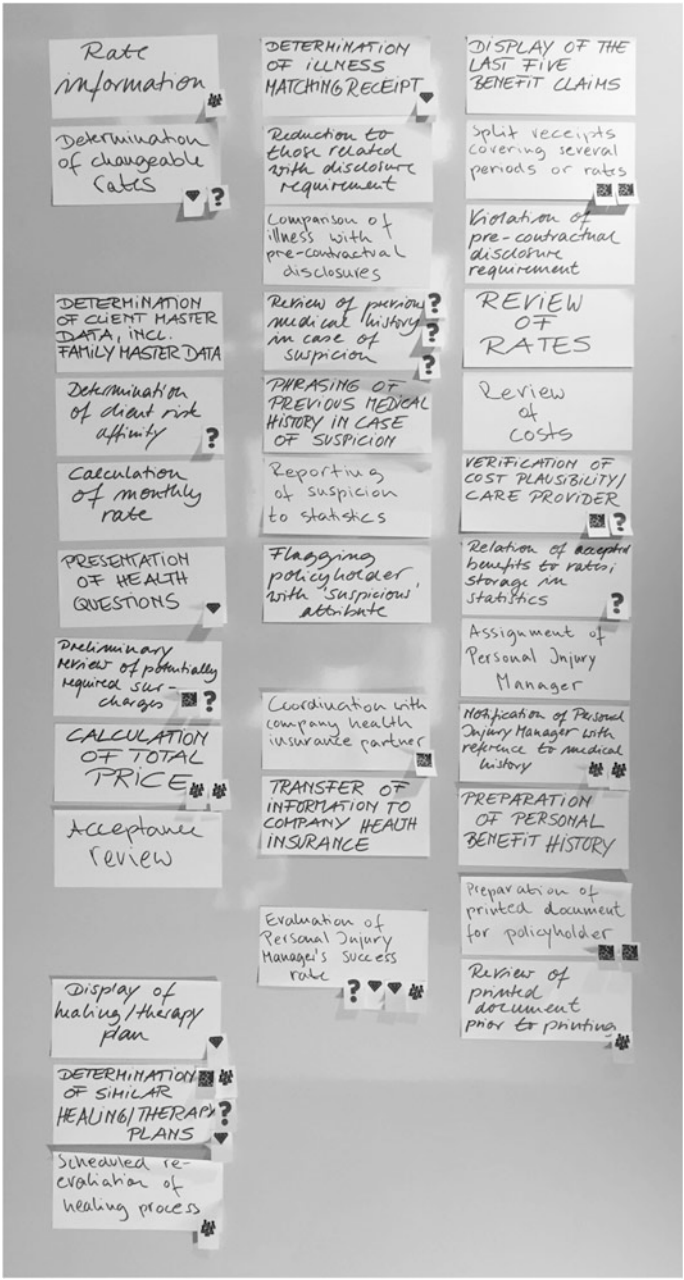 Rate
information
Determination
of changeable
rates
?
DETERMINATION
OF CLIENT MASTER
DATA, INCL.
FAMILY MASTER DATA
Determination
of client risk
affinity
?
Calculation
of monthly
rate
PRESENTATION
OF HEALTH
QUESTIONS
Preliminary
review of potentially
required sur-
charges ?
CALCULATION
OF TOTAL
PRICE
Acceptance
review
Display of
healing/therapy
plan
DETERMINATION
OF SIMILAR
HEALING/THERAPY ?
PLANS
Scheduled re-
evaluation of
healing process
DETERMINATION
OF ILLNESS
MATCHING RECEIPT
Reduction to
those related
with disclosure
requirement
Comparison of
illness with
pre-contractual
disclosures
Review of previous ?
medical history ?
in case of
suspicion ?
PHRASING OF
PREVIOUS MEDICAL
HISTORY IN CASE
OF SUSPICION
Reporting
of suspicion
to statistics
Flagging
policyholder
with 'suspicious'
attribute
Coordination with
company health
insurance partner
TRANSFER OF
INFORMATION TO
COMPANY HEALTH
INSURANCE
Evaluation of
Personal Injury
Manager's success
rate
?
DISPLAY OF THE
LAST FIVE
BENEFIT CLAIMS
Split receipts
covering several
periods or rates
Violation of
pre-contractual
disclosure
requirement
REVIEW
OF
RATES
Review
of
costs
VERIFICATION OF
COST PLAUSIBILITY/
CARE PROVIDER
?
Relation of accepted
benefits to rates;
storage in
statistics
?
Assignment of
Personal Injury
Manager
Notification of Personal
Injury Manager with
reference to medical
history
PREPARATION
OF PERSONAL
BENEFIT HISTORY
Preparation of
printed document
for policyholder
Review of
printed
document
prior to printing